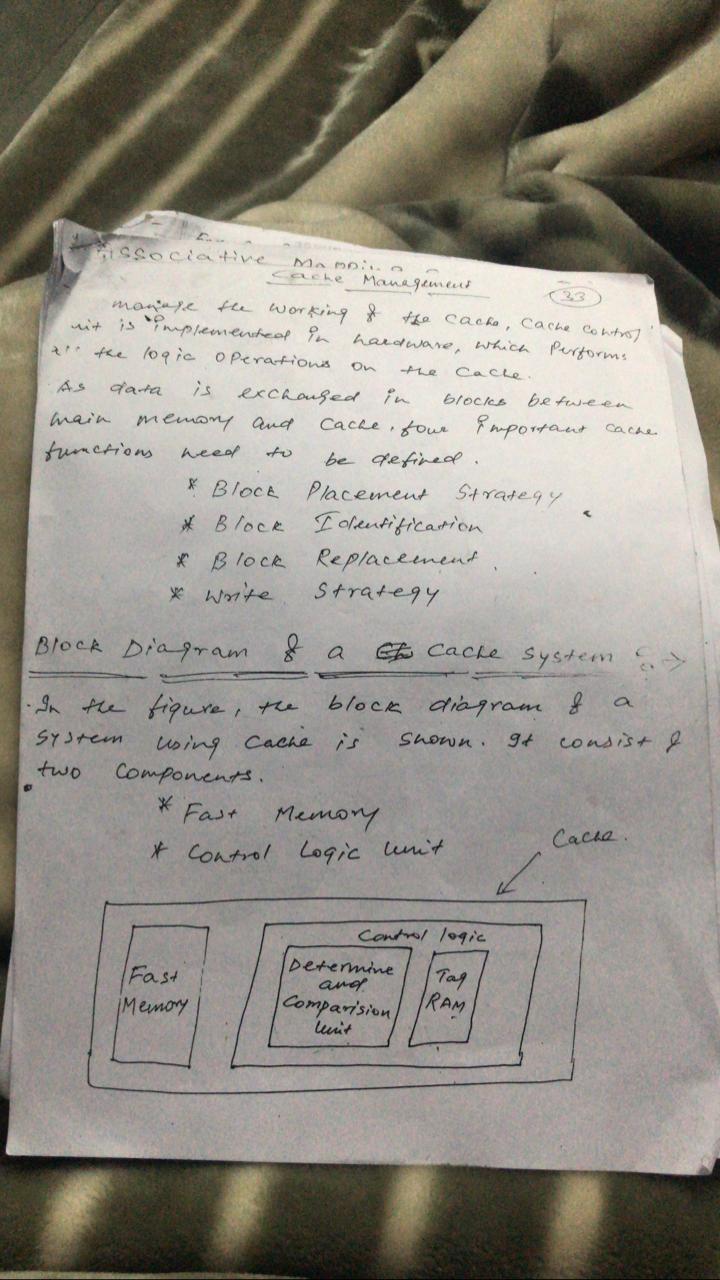 Associative Mapping
Cache Management
33
manage the working of the cache, cache control
unit is implemented in hardware, which performs
the logic operations on the cache.
As data is exchanged in blocks between
main memory and cache, four important cache
functions need to be defined.
* Block Placement Strategy
* Block Identification
* Block Replacement.
* Write Strategy
Block Diagram of a Cache System :->
In the figure, the block diagram of a
system using cache is shown. It consist of
two components.
* Fast Memory
* Control Logic Unit
Cache.
Control logic
Fast
Memory
Determine
and
Comparision
Unit
Tag
RAM